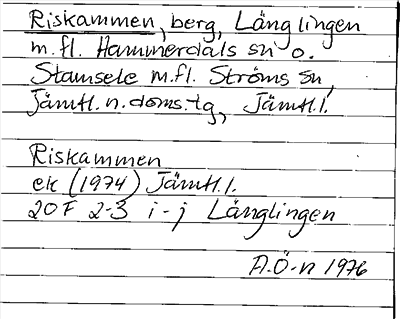 Riskammen, berg, Länglingen
m.fl. Hammerdals sn o.
Stamsele m.fl. Ströms sn,
Jämtl.n.doms.tg, Jämtl.l.
Riskammen
ek (1974) Jämtl.l.
20F 2-3 i-j Länglingen
A.Ö-n 1976